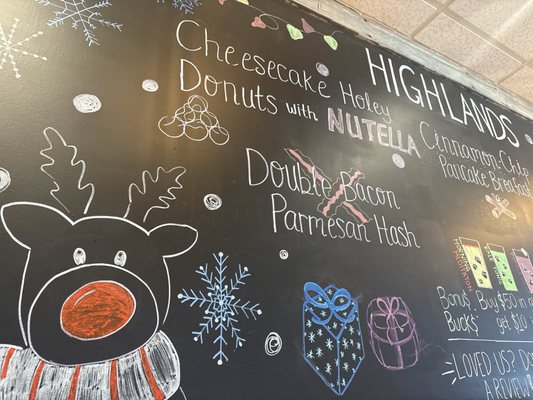 HIGHLANDS
Cheesecake Holey
Donuts with NUTELLA
Cinnamon-Chip
Pancake Breakfast
Double Bacon
Parmesan Hash
Bonus Buy $50 in
Bucks* get $10
LOVED US?
A REVIEW